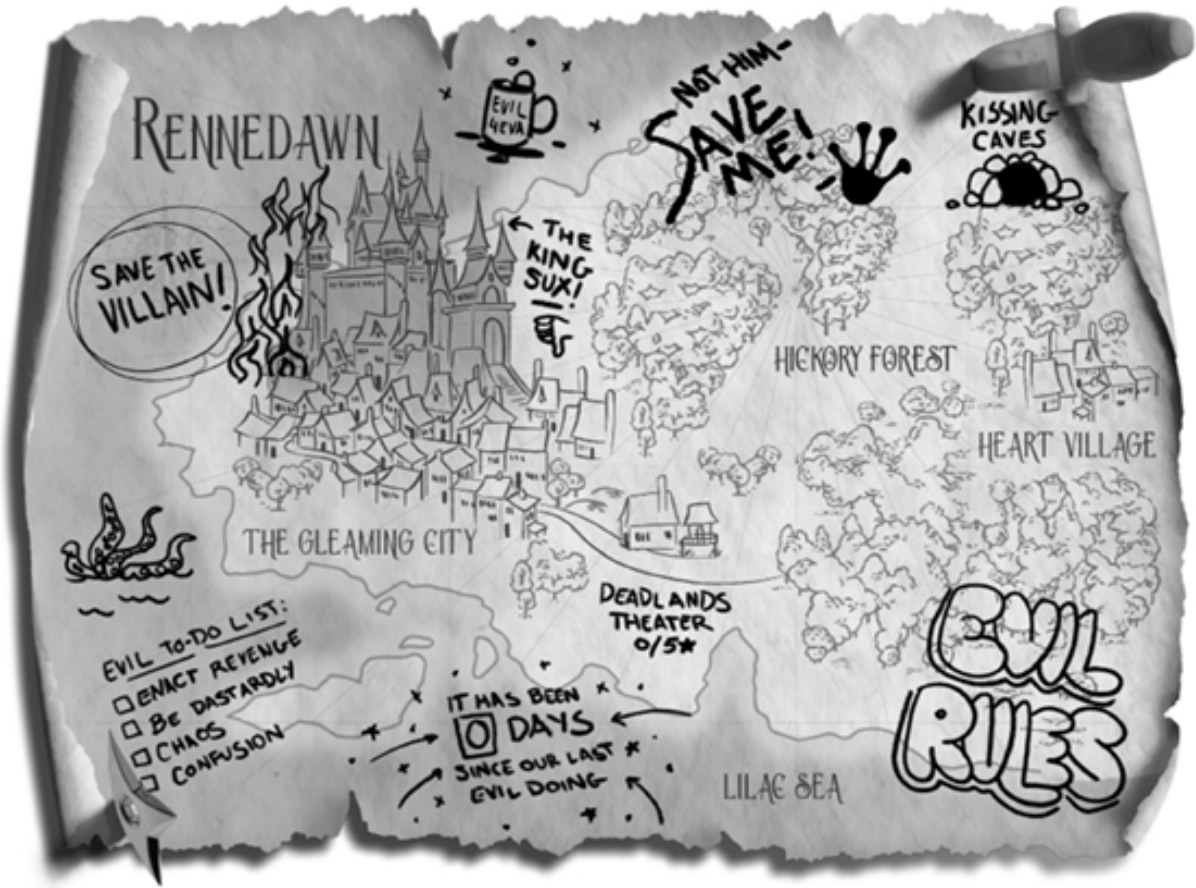 RENNEDAWN
EVIL
4EVA
NOT HIM-
SAVE
ME!
KISSING
CAVES
SAVE THE
VILLAIN!
← THE
KING
SUX!
HICKORY FOREST
HEART VILLAGE
THE GLEAMING CITY
DEADLANDS
THEATER
0/5★
EVIL TO-DO LIST:
□ ENACT REVENGE
□ BE DASTARDLY
□ CHAOS
□ CONFUSION
IT HAS BEEN
0 DAYS
SINCE OUR LAST
EVIL DOING
LILAC SEA
EVIL
RULES